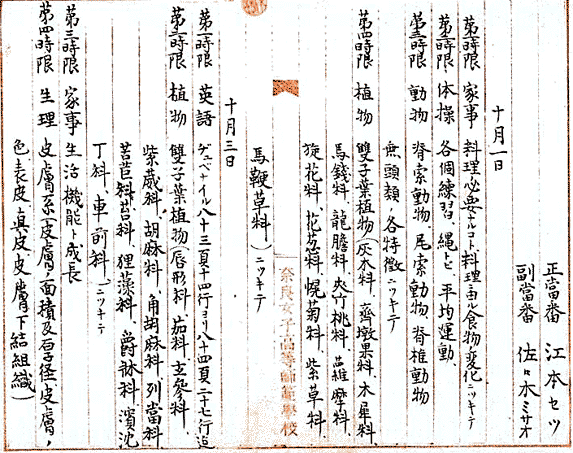 正當番 江本セツ
副當番 佐々木ミサオ
十月一日
第一時限 家事 料理ノ必要ナルコト、料理ニ由ル食物ノ変化ニツキテ
第二時限 体操 各個練習、縄とび、平均運動、
第三時限 動物 脊索動物 尾索動物、脊椎動物
無頭類ノ各特徴ニツキテ
第四時限 植物 雙子葉植物(灰木科、齊墩果科、木犀科、
馬錢科、龍膽科、夾竹桃科、蘿藦科、
旋花科、花葱科、幌菊科、紫草科、
馬鞭草科)ニツキテ
十月三日
第一時限 英語 八十三頁十四行ヨリ八十四頁二十七行迄
第二時限 植物 雙子葉植物(唇形科、茄科、玄參科、
紫葳科、胡麻科、角胡麻科、列當科、
苦苣苔科、狸藻科、爵牀科、濱沈
丁科、車前科)ニツキテ
第三時限 家事 生活機能ト成長
第四時限 生理 皮膚系(皮膚ノ面積及厚徑、皮膚ノ
色、表皮、真皮、皮膚下結組織)
奈良女子高等師範學校